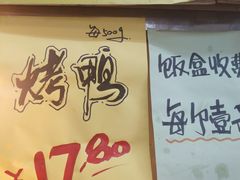 每500g
烤鸭
¥17.80
饭盒收费
每个壹